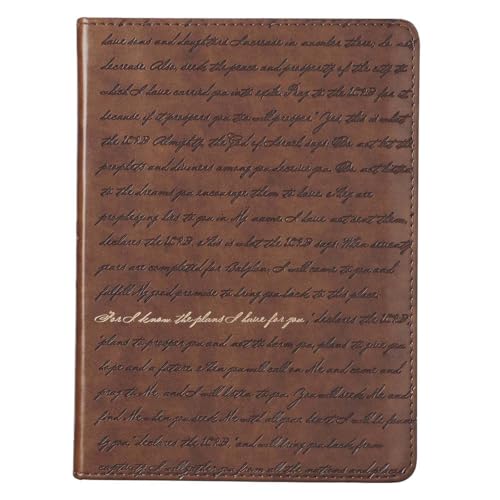 have sons and daughters Increase in number there; do not
decrease. Also, seek the peace and prosperity of the city to
which I have carried you into exile. Pray to the LORD for it
because if it prospers you too will prosper." Yes, this is what
the LORD Almighty, the God of Israel says: "Do not let the
prophets and diviners among you deceive you. Do not listen
to the dreams you encourage them to have. They are
prophesying lies to you in My name. I have not sent them,"
declares the LORD. This is what the LORD says: "When seventy
years are completed for Babylon, I will come to you and
fulfill My good promise to bring you back to this place.
For I know the plans I have for you," declares the LORD,
"plans to prosper you and not to harm you, plans to give you
hope and a future. Then you will call on Me and come and
pray to Me, and I will listen to you. You will seek Me and
find Me when you seek Me with all your heart. I will be found
by you," declares the LORD, "and will bring you back from
captivity. I will gather you from all the nations and places